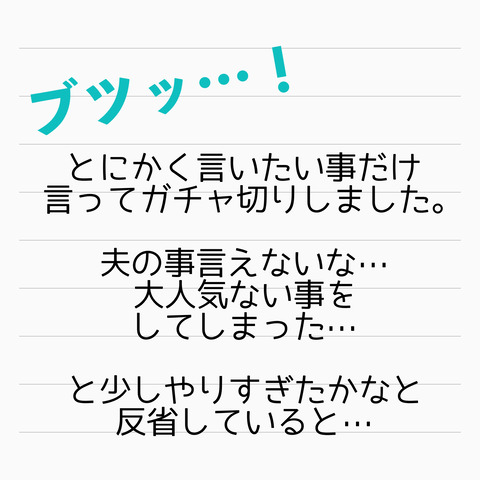 ブツッ…！
とにかく言いたい事だけ
言ってガチャ切りしました。
夫の事言えないな…
大人気ない事を
してしまった…
と少しやりすぎたかなと
反省していると…